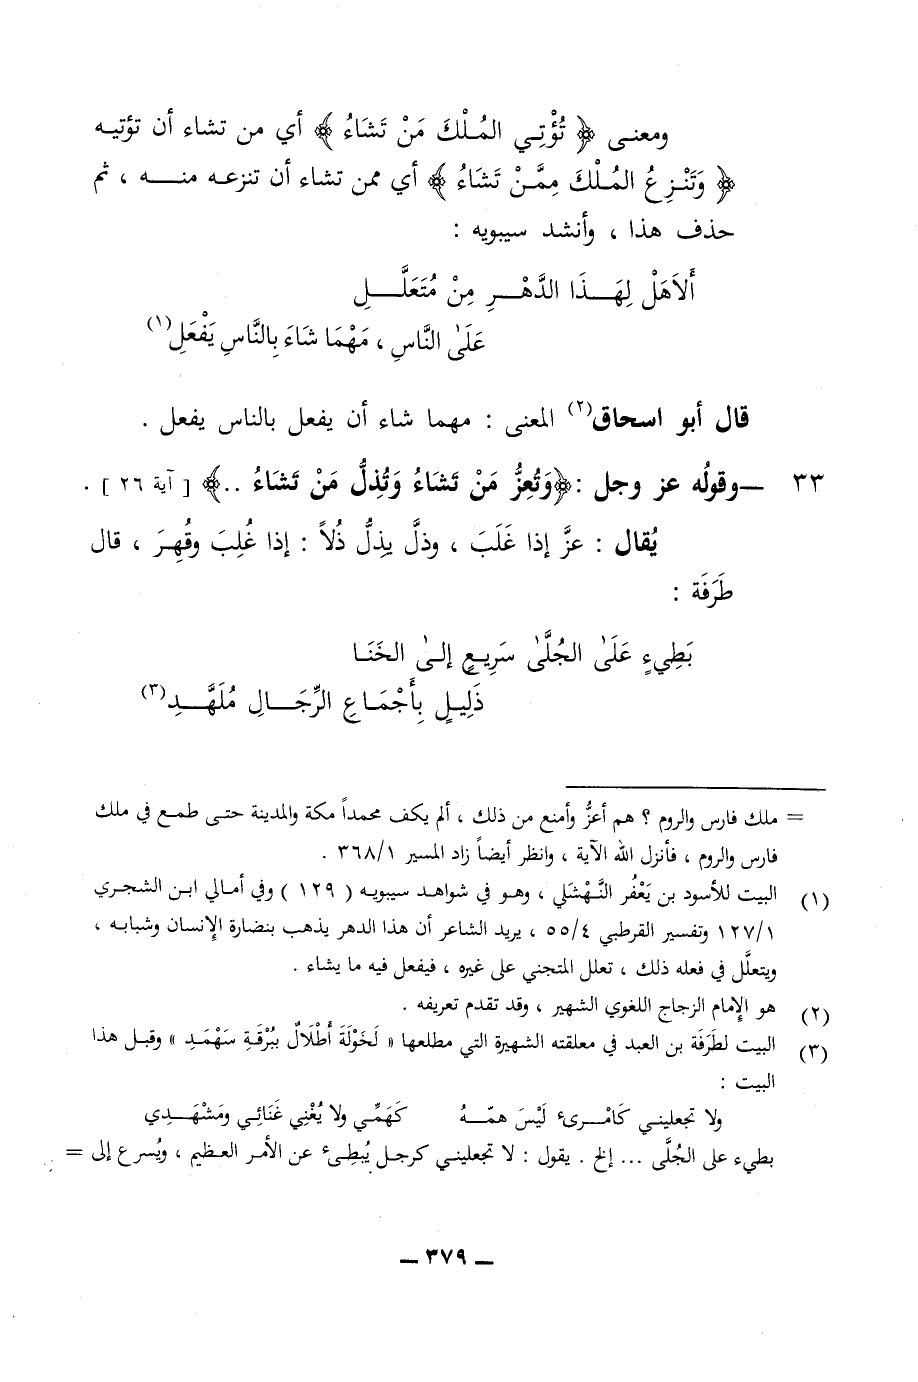 ومعنى ﴿ تُؤْتِي المُلْكَ مَنْ تَشَاءُ ﴾ أي من تشاء أن تؤتيه
﴿ وَتَنْزِعُ المُلْكَ مِمَّنْ تَشَاءُ ﴾ أي ممن تشاء أن تنزعه منه ، ثم
حذف هذا ، وأنشد سيبويه :
أَلاَهَلْ لِهَذَا الدَّهْرِ مِنْ مُتَعَلَّلِ
عَلَىٰ النَّاسِ ، مَهْمَا شَاءَ بِالنَّاسِ يَفْعَلِ(١)
قال أبو اسحاق(٢) المعنى : مهما شاء أن يفعل بالناس يفعل .
٣٣ – وقولُه عز وجل : ﴿وَتُعِزُّ مَنْ تَشَاءُ وَتُذِلُّ مَنْ تَشَاءُ ..﴾ [ آية ٢٦ ] .
يُقال : عزَّ إذا غَلَبَ ، وذلَّ يذِلُّ ذُلاً : إذا غُلِبَ وقُهِرَ ، قال
طَرَفَة :
بَطِيءٍ عَلَىٰ الجُلَّىٰ سَرِيعٍ إلىٰ الخَنَا
ذَلِيلٍ بِأَجْمَاعِ الرِّجَالِ مُلَهَّدِ(٣)
= ملك فارس والروم ؟ هم أعزُّ وأمنع من ذلك ، ألم يكف محمداً مكة والمدينة حتى طمع في ملك
فارس والروم ، فأنزل الله الآية ، وانظر أيضاً زاد المسير ٣٦٨/١ .
(١) البيت للأسود بن يَعْفُر النَّهْشَلي ، وهو في شواهد سيبويه ( ١٢٩ ) وفي أمالي ابن الشجري
١٢٧/١ وتفسير القرطبي ٥٥/٤ ، يريد الشاعر أن هذا الدهر يذهب بنضارة الإنسان وشبابه ،
ويتعلَّل في فعله ذلك ، تعلل المتجني على غيره ، فيفعل فيه ما يشاء .
(٢) هو الإمام الزجاج اللغوي الشهير ، وقد تقدم تعريفه .
(٣) البيت لطَرَفَة بن العبد في معلقته الشهيرة التي مطلعها « لَخَوْلَةَ أَطْلَالٌ بُبْرْقَةِ سَهْمَدِ » وقبل هذا
البيت :
ولا تجعليني كَامْرىء لَيْسَ همّهُ كَهَمِّي ولا يُغْنِي غَنَائِي ومَشْهَدِي
بطيء على الجُلَّى ... إلخ . يقول : لا تجعليني كرجل يُبطِىء عن الأمر العظيم ، ويُسرع إلى =
– ٣٧٩ –